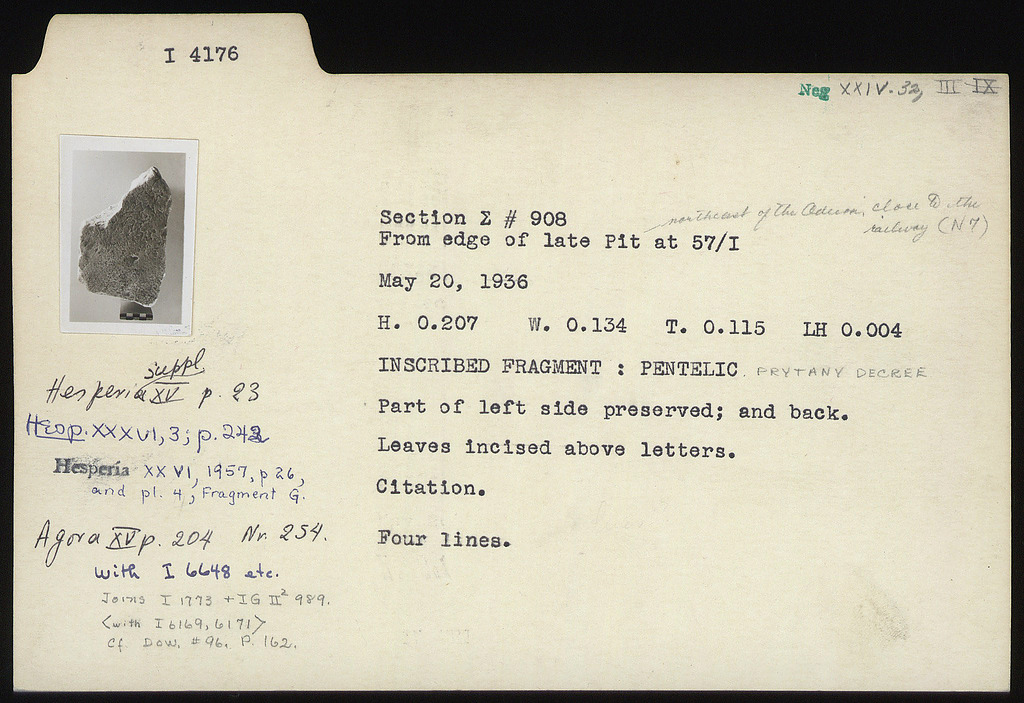 I 4176
Neg XXIV-32, III IX
Section Σ # 908
northeast of the Odeion, close to the
railway (N 7)
From edge of late Pit at 57/I
May 20, 1936
H. 0.207 W. 0.134 T. 0.115 LH 0.004
INSCRIBED FRAGMENT : PENTELIC. PRYTANY DECREE
Part of left side preserved; and back.
Leaves incised above letters.
Citation.
Four lines.
suppl
Hesperia XV p. 23
Hesp. XXXVI, 3; p. 242
Hesperia XXVI, 1957, p 26,
and pl. 4, Fragment G.
Agora XV p. 204 Nr. 254.
with I 6648 etc.
Joins I 1773 + IG II² 989.
<with I 6169, 6171>
Cf. Dow. #96. P. 162.